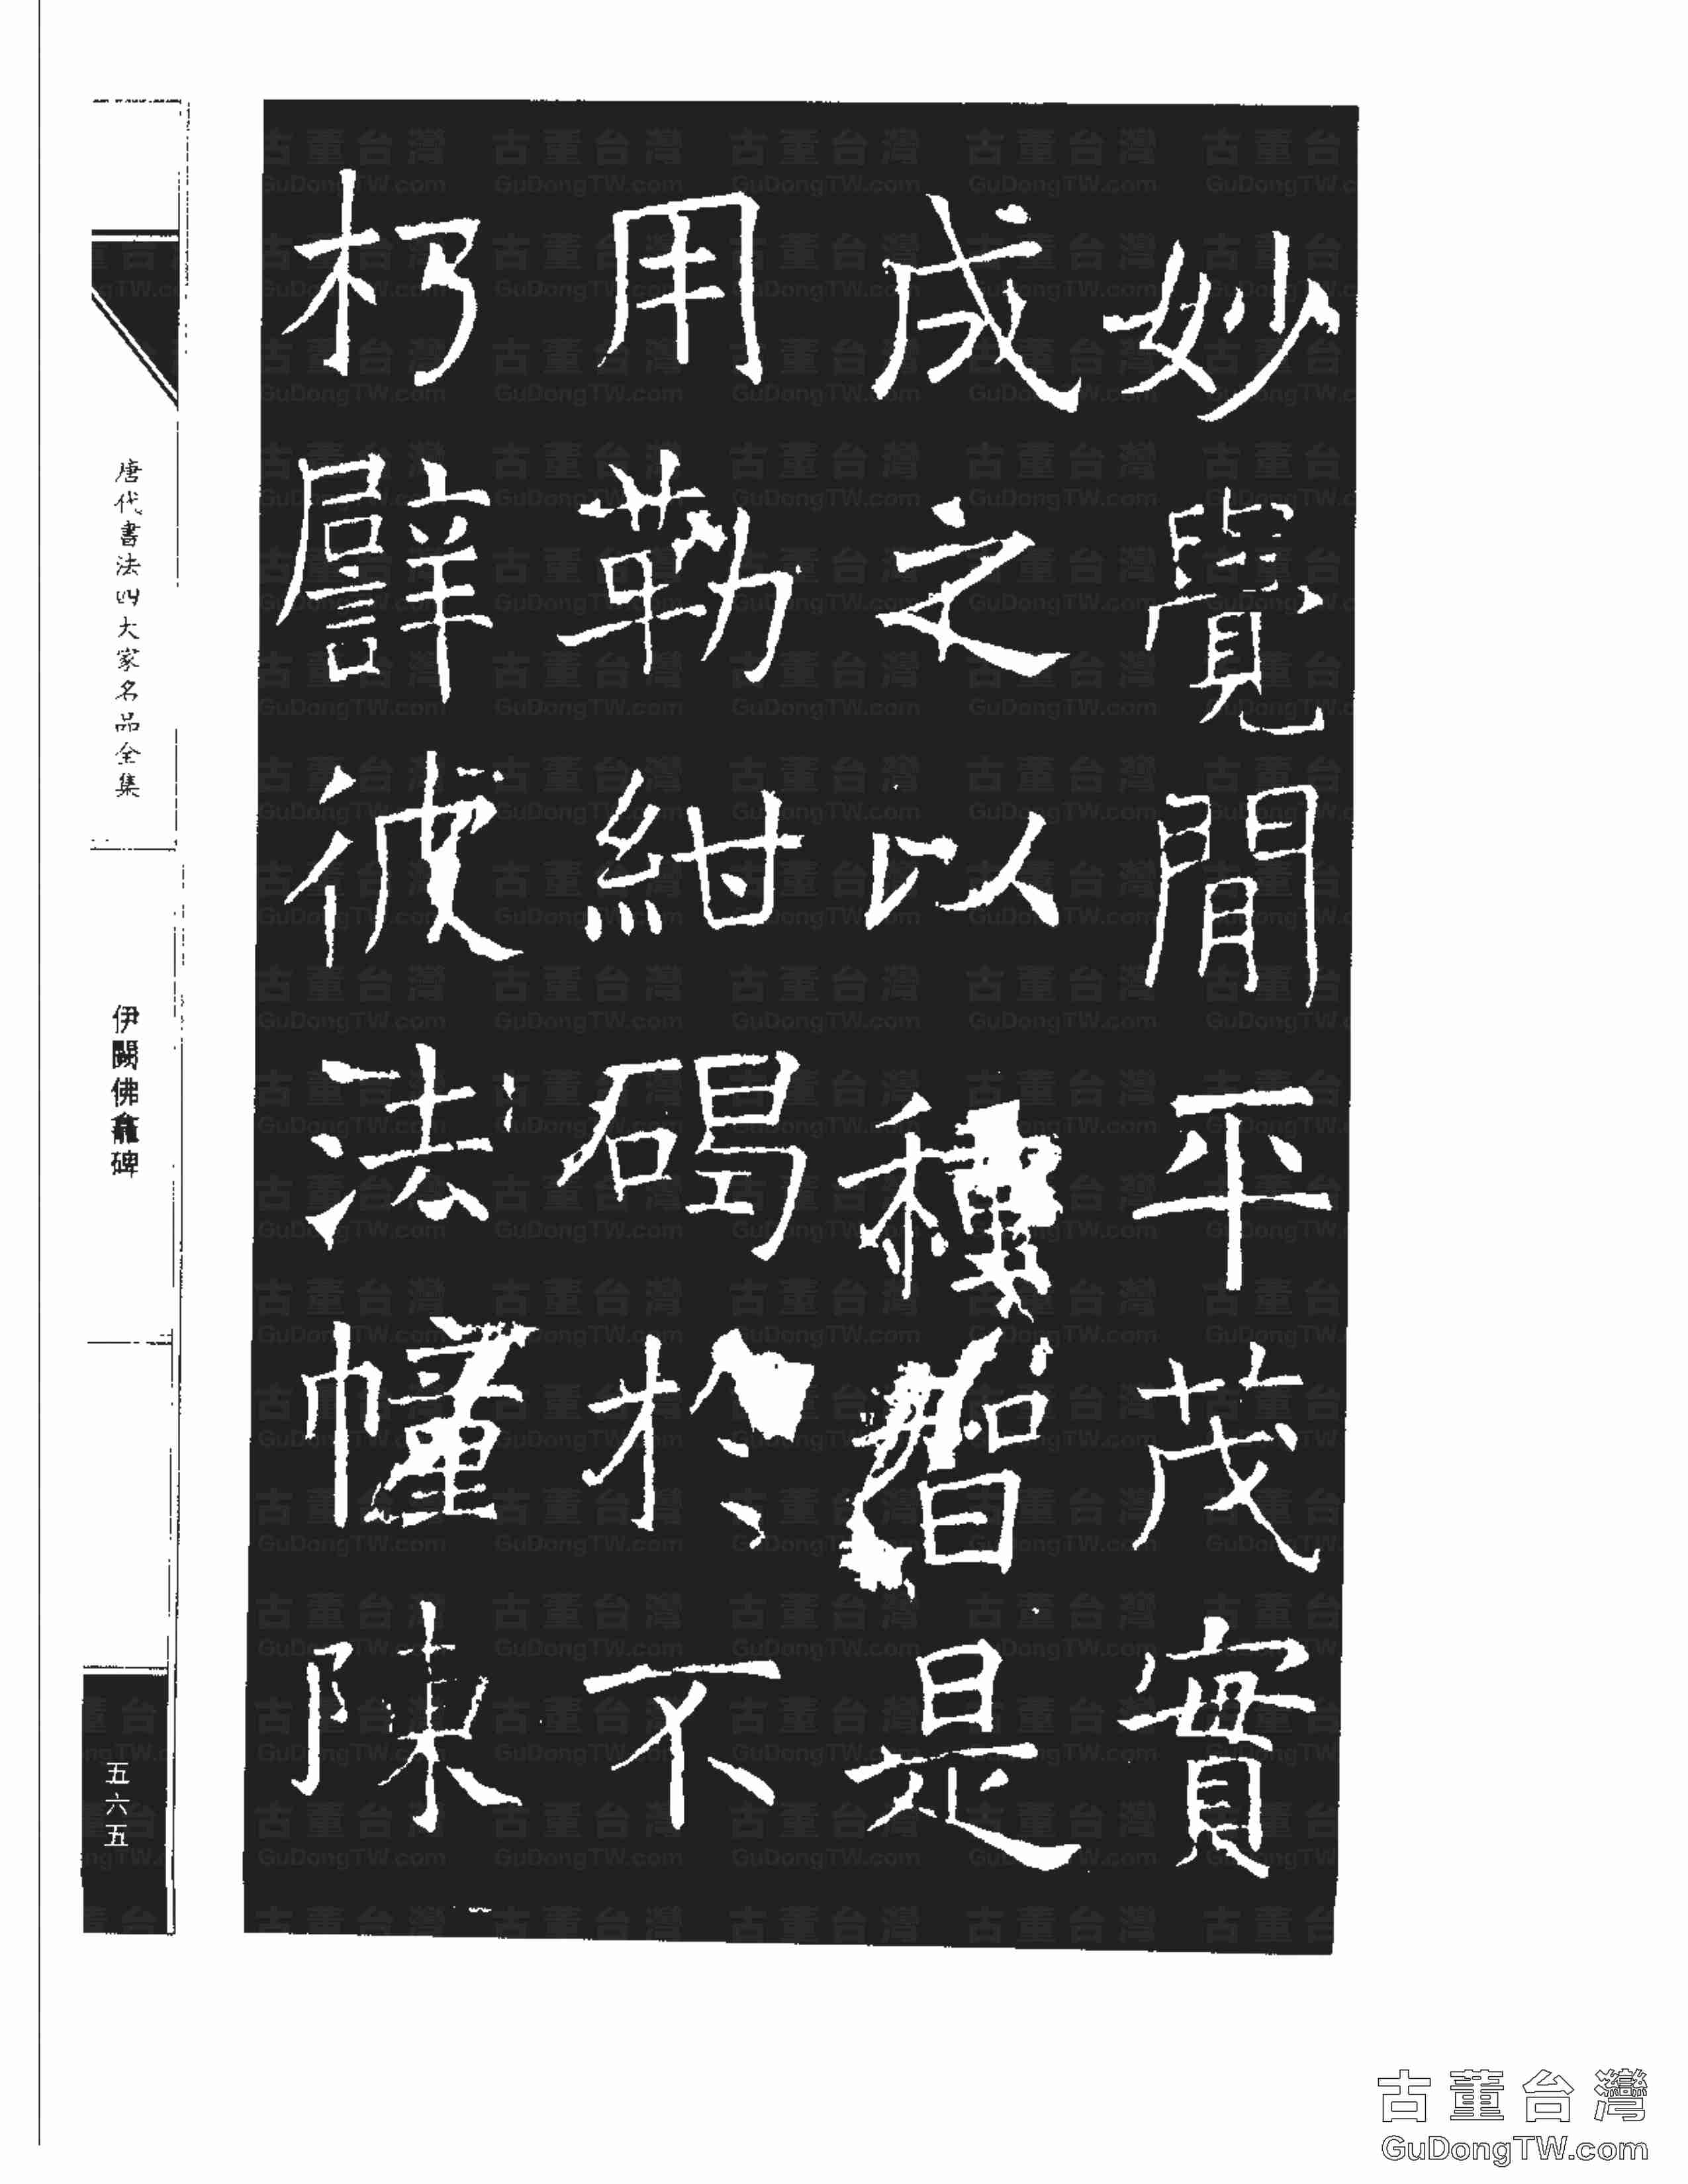 妙覺閒平茂實
成之以種智是
用勒紺碣於不
朽譬彼法幢陳
唐代書法四大家名品全集
伊闕佛龕碑
五六五
古董台灣
GuDongTW.com